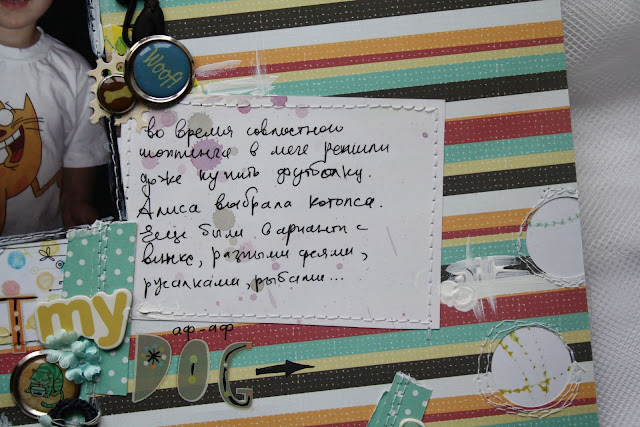 WOOF
во время совместного
шоппинга в меге решили
даже купить футболку.
Алиса выбрала котопса.
Еще были варианты с
винкс, разными феями,
русалками, рыбами...
I my
аф-аф
DOG